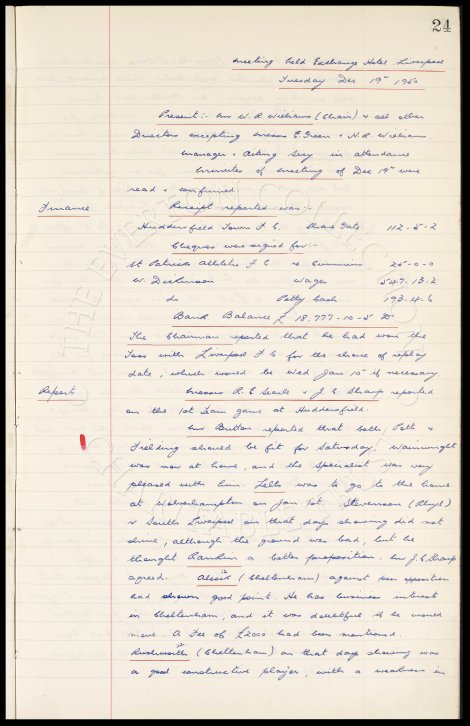 24
Meeting held Exchange Hotel. Liverpool
Tuesday Dec 19th 1950
Present:- Mr W. R. Williams (Chair) & all other
Directors excepting Messrs E. Green & N. R. Williams
Manager & Acting Secy in attendance
Minutes of meeting of Dec 19th were
read & confirmed
Finance Receipt reported was:-
Huddersfield Town F C. Share Gate 112-5-2
Cheques were signed for:-
St Patricks Athletic F C re Cummins 25-0-0
W. Dickinson Wages 547.13.2
do Petty Cash 193-4.6
Bank Balance £ 18,777-10-5 Dr
The Chairman reported that he had won the
Toss with Liverpool F C for the choice of replay
date, which would be Wed Jan 10th if necessary
Reports Messrs R. E. Searle & J. C. Sharp reported
on the 1st Team game at Huddersfield.
Mr Britton reported that both, Potts &
Fielding should be fit for Saturday. Wainwright
was now at home, and the Specialist was very
pleased with him. Lello was to go to the home
at Wolverhampton on Jan 1st. Stevenson (Rhyl)
v South Liverpool on that days showing did not
shine, although the ground was bad, but he
thought Rankin a better proposition. Mr J. C. Sharp
agreed. (Cheltenham) against poor opposition
had shown good point. He has business interest
in Cheltenham, and it was doubtful if he would
move. A Fee of £2000 had been mentioned.
Rushworth (Cheltenham) on that days showing was
a good constructive player, with a weakness in
THE EVERTON COLLECTION